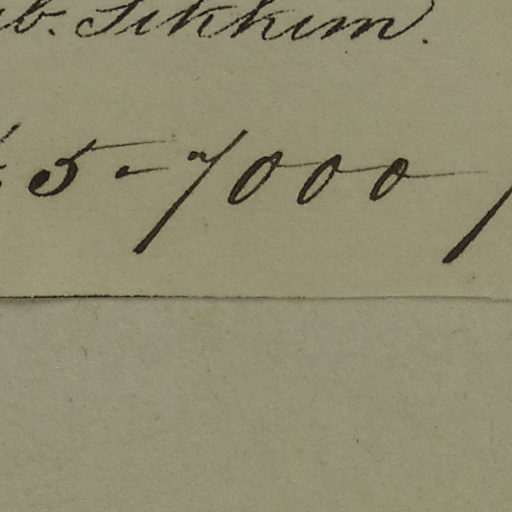 b. Sikkim.
5-7000